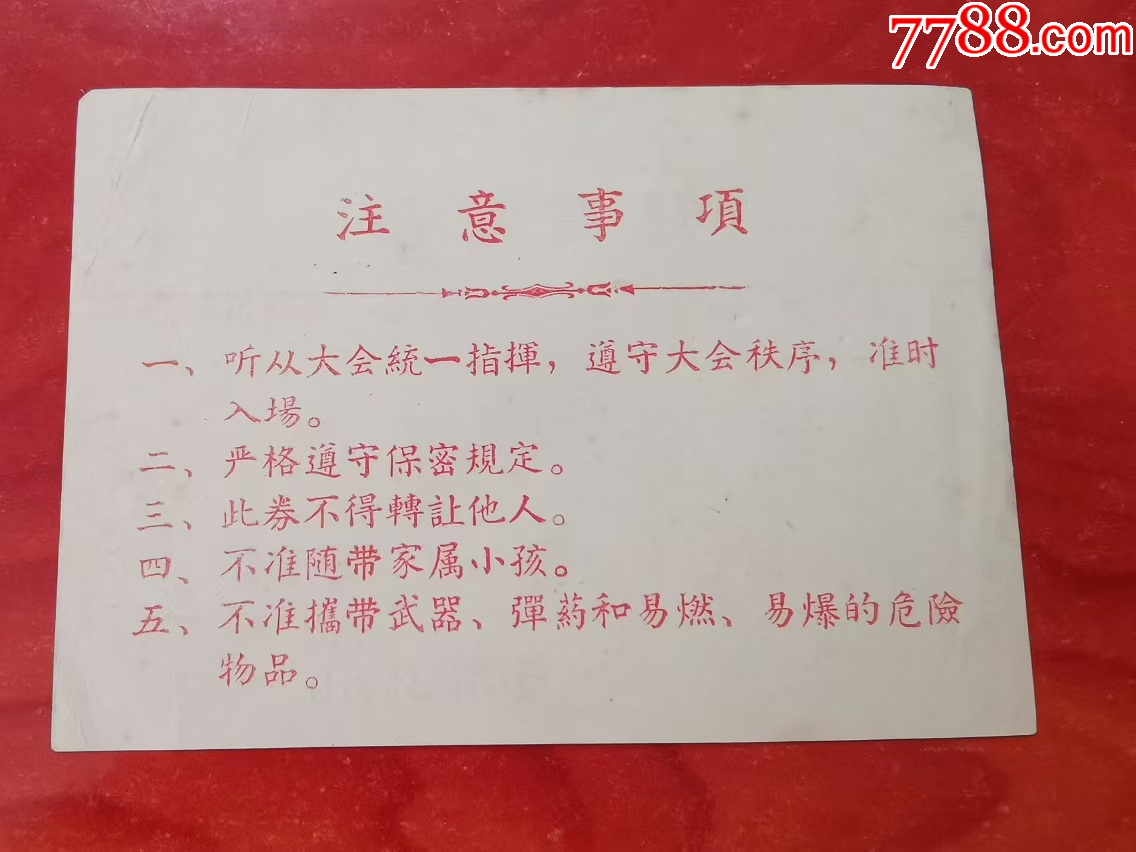 7788.com
注意事項
一、听从大会統一指揮，遵守大会秩序，准时
入場。
二、严格遵守保密規定。
三、此券不得轉讣他人。
四、不准随带家属小孩。
五、不准攜带武器、彈药和易燃、易爆的危險
物品。